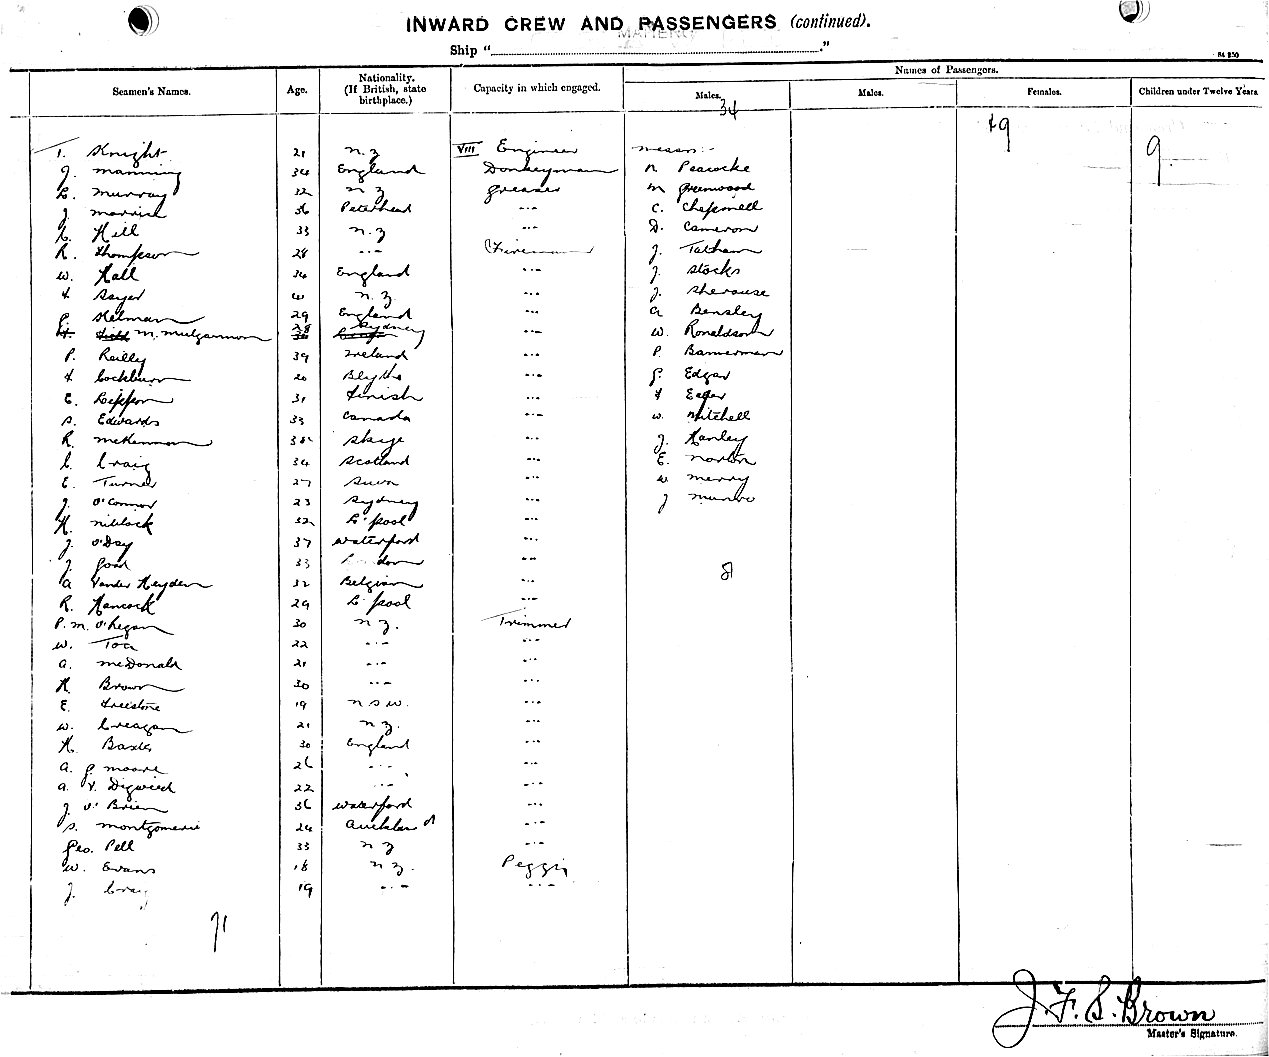 INWARD CREW AND PASSENGERS (continued).
Ship "MAHENO"
84 250
Seamen's Names.
Age.
Nationality. (If British, state birthplace.)
Capacity in which engaged.
Names of Passengers.
Males.
Males.
Females.
Children under Twelve Years
34
49
9
T. Knight 21 n.z VIII Engineer
J. manning 34 England Donkeyman
murray 32 n z greaser
J. 36 Peterhead -"-
Hill 33 n.z -"-
R. Thompson 28 -"- Fireman
W. Hall 34 England -"-
Sayer n.z. -"-
Helman 29 England -"-
m. mulgannon 28 Sydney -"-
P. Reilly 39 Ireland -"-
Cockburn 20 Blyth -"-
E. 31 Finish -"-
S. Edwards 33 Canada -"-
R. mcKinnon Skye -"-
C. Craig 34 Scotland -"-
E. Turner 27 -"-
J. O'Connor 23 Sydney -"-
H. niblock 32 L'pool -"-
J. O'Day 37 Waterford -"-
J. 33 London -"-
a Vander Heyden 32 Belgian -"-
R. Hancock 29 L'pool -"-
P. m. O'Regan 30 n z. Trimmer
W. Toa 22 -"- -"-
a. mcDonald 21 -"- -"-
H. Brown 30 -"- -"-
E. Freestone 19 n s w. -"-
W. Creagan 21 n z. -"-
H. Baxter 30 England -"-
a. g moore 26 -"- -"-
a. V. Digweed 22 -"- -"-
J. O'Brien 36 Waterford -"-
S. montgomerie 24 Auckland -"-
Geo. Pell 33 n z -"-
W. Evans 18 n z. Peggy
J. Craig 19 -"- -"-
71
messrs:-
n Peacocke
m greenwood
C. Chesmell
D. Cameron
J. Tatham
J. Stocks
J. Sherouse
a Bensley
W. Ronaldson
P. Bannerman
Edgar
W. Mitchell
J. Hanley
E. norton
W merry
J munro
J. F. S. Brown
Master's Signature.